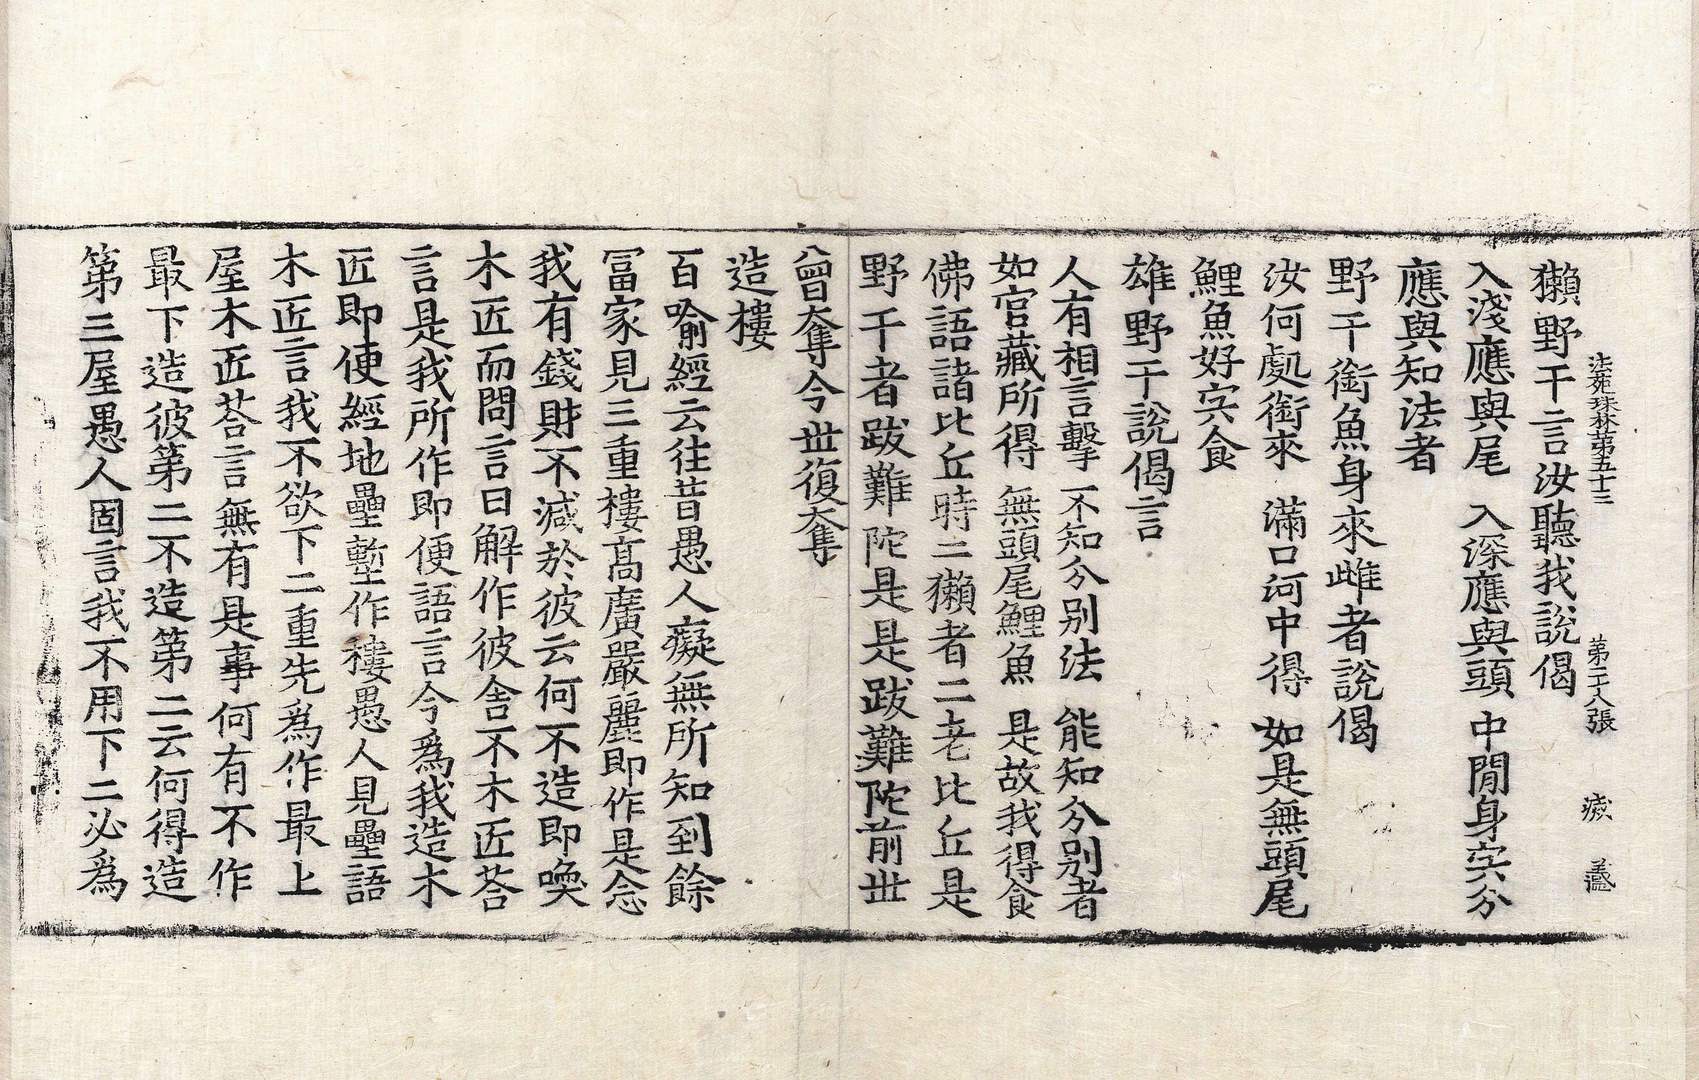 法苑珠林第五十三 第二十八張 㾗
獺野干言汝聽我說偈
入淺應與尾 入深應與頭 中閒身宍分
應與知法者
野干銜魚身來雌者說偈
汝何處銜來 滿口河中得 如是無頭尾
鯉魚好宍食
雄野干說偈言
人有相言擊 不知分別法 能知分別者
如官藏所得 無頭尾鯉魚 是故我得食
佛語諸比丘時二獺者二老比丘是
野干者跋難陀是是跋難陀前世
曾奪今世復奪
造樓
百喻經云往昔愚人癡無所知到餘
冨家見三重樓高廣嚴麗即作是念
我有錢財不減於彼云何不造即喚
木匠而問言曰解作彼舍不木匠荅
言是我所作即便語言今爲我造木
匠即便經地壘墼作樓愚人見壘語
木匠言我不欲下二重先爲作最上
屋木匠荅言無有是事何有不作
最下造彼第二不造第二云何得造
第三屋愚人固言我不用下二必爲